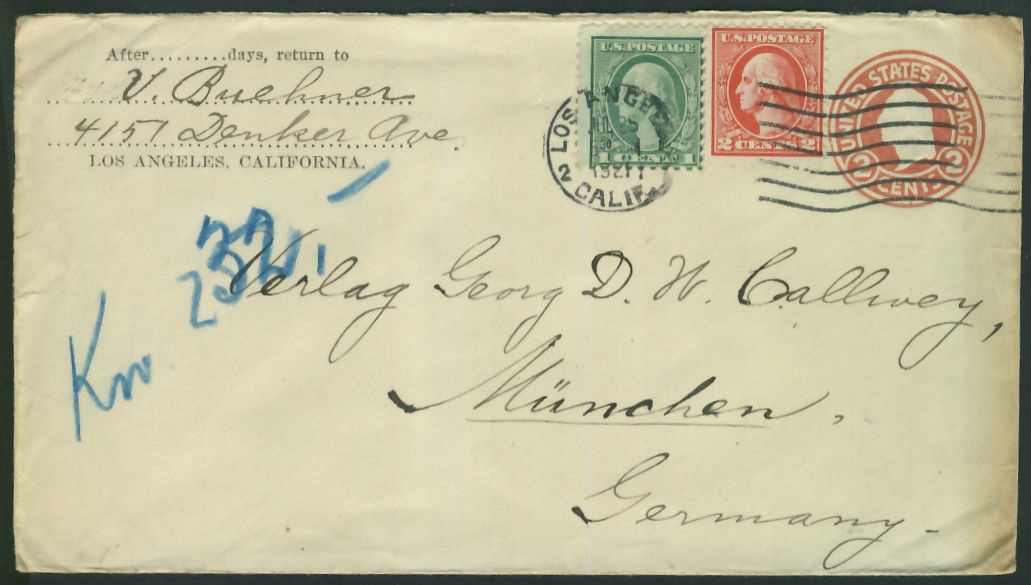 After.........days, return to
V. Buehner
4157 Denker Ave.
LOS ANGELES, CALIFORNIA.
U.S. POSTAGE
1 CENT 1
U.S. POSTAGE
2 CENTS 2
UNITED STATES POSTAGE
2 CENTS 2
LOS ANGELES
1921
2 CALIF.
Verlag Georg D. W. Callwey,
München,
Germany.